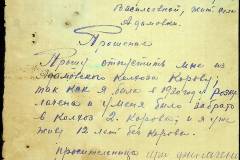 Василовной, жит. села
Адамовки.
Прошение
Прошу отпустить мне из
Адамовского Колхоза Корову,
так как я, была в 1930 году раску-
лачена и у меня было забрато
в Колхоз 2. Коровы; и я уже
живу 12 лет без Коровы.
просительница